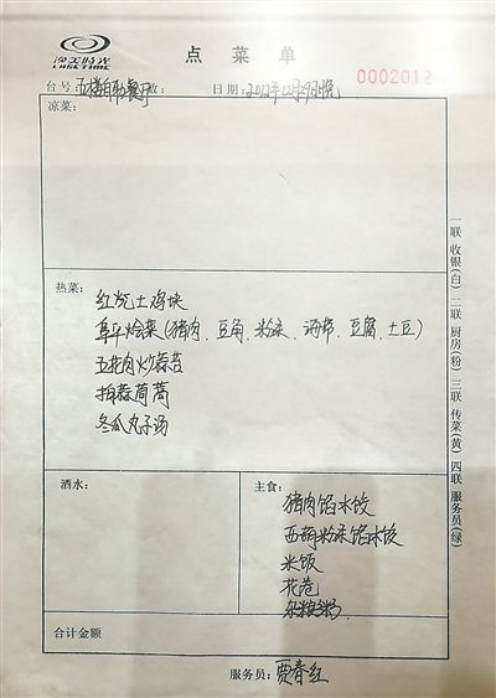 渔美时光
LUCK TIME
点菜单
0002012
台号:五楼自助餐厅 数: 日期:2012年12月29日晚
凉菜:
热菜:
红烧土鸡块
阜平烩菜(猪肉、豆角、粉条、海带、豆腐、土豆)
五花肉炒蒜苔
拍蒜茼蒿
冬瓜丸子汤
酒水:
主食:
猪肉馅水饺
西葫粉条馅水饺
米饭
花卷
杂粮粥
合计金额
服务员:贾春红
一联 收银(白) 二联 厨房(粉) 三联 传菜(黄) 四联 服务员(绿)